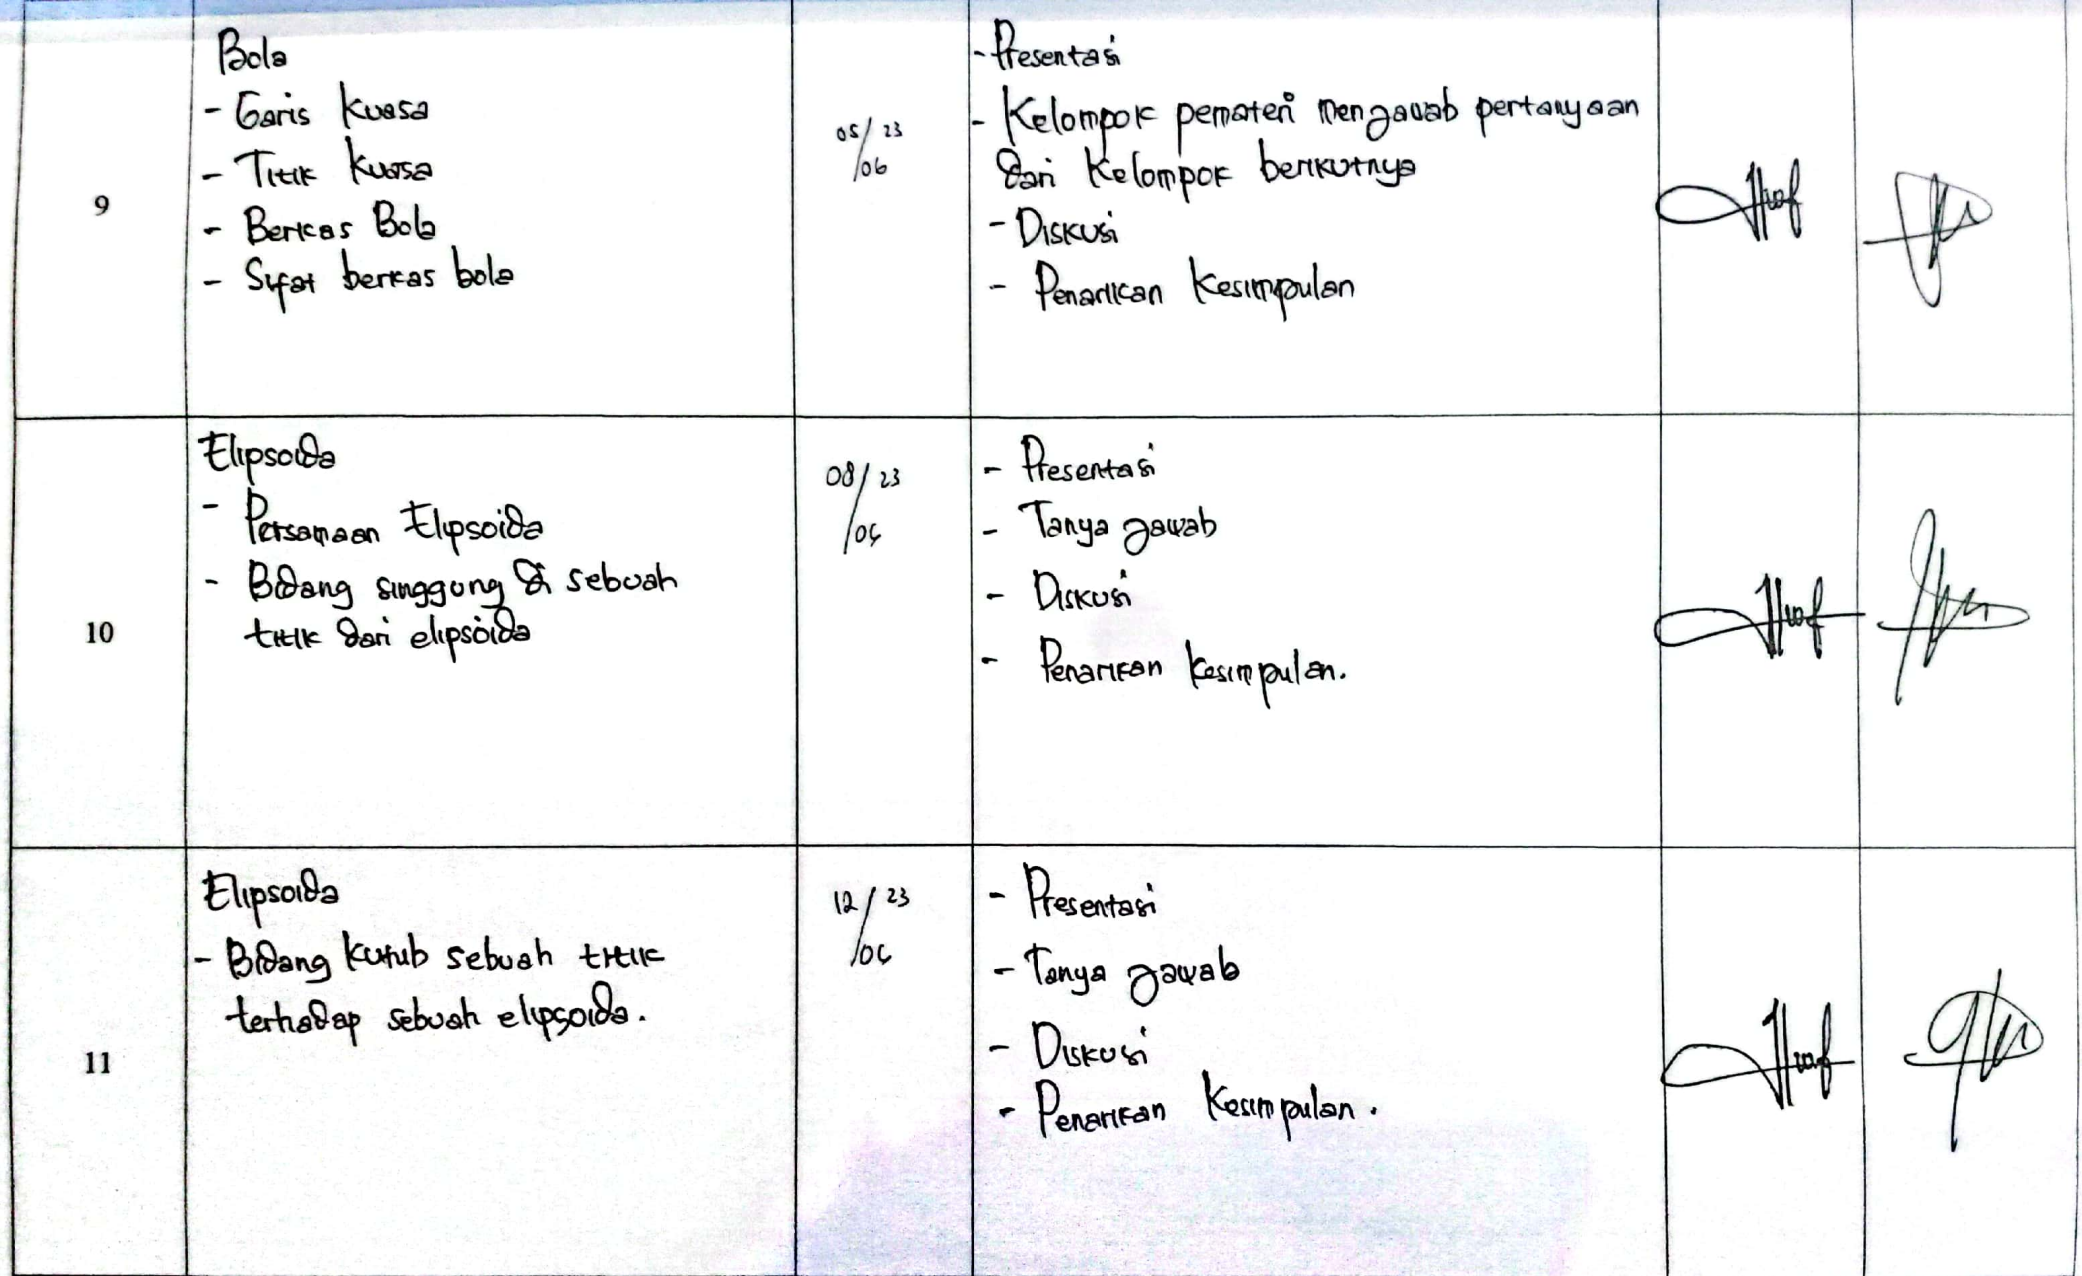 9
Bola
- Garis Kuasa
- Titik Kuasa
- Berkas Bola
- Sifat berkas bola
05/06 23
- Presentasi
- Kelompok pemateri menjawab pertanyaan
dari Kelompok berikutnya
- Diskusi
- Penarikan Kesimpulan
10
Elipsoida
- Persamaan Elipsoida
- Bidang singgung di sebuah
titik dari elipsoida
08/06 23
- Presentasi
- Tanya jawab
- Diskusi
- Penarikan Kesimpulan.
11
Elipsoida
- Bidang kutub sebuah titik
terhadap sebuah elipsoida.
12/06 23
- Presentasi
- Tanya jawab
- Diskusi
- Penarikan Kesimpulan.